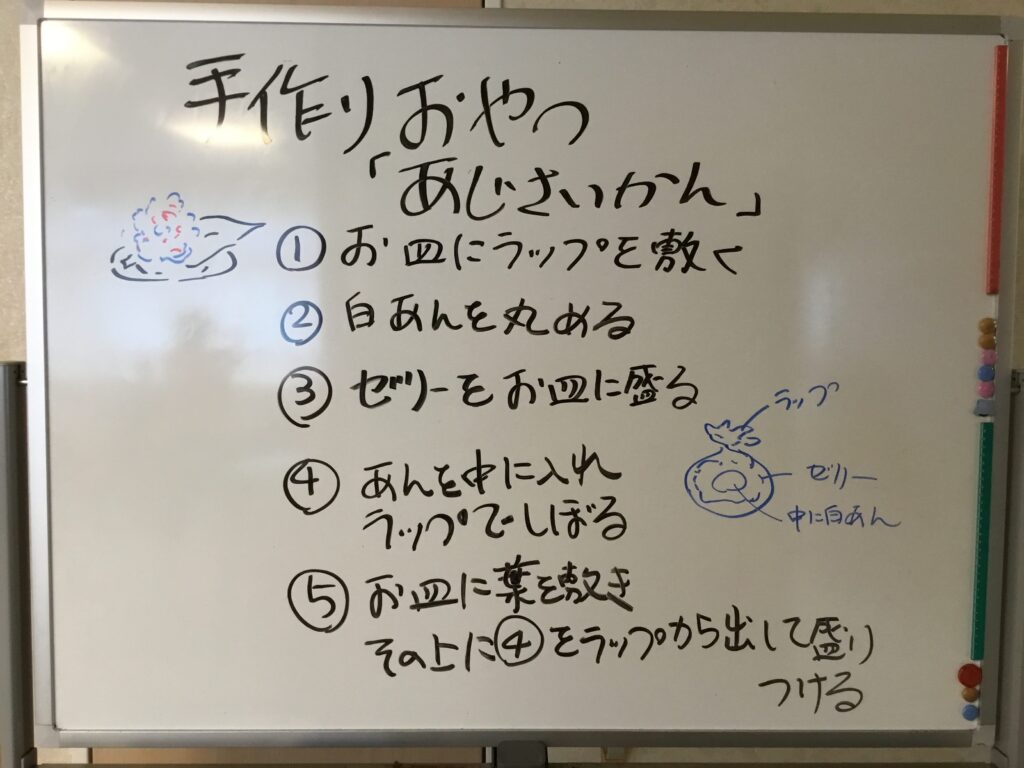 手作りおやつ
「あじさいかん」
① お皿にラップを敷く
② 白あんを丸める
③ ゼリーをお皿に盛る
④ あんを中に入れ
ラップでしぼる
⑤ お皿に葉を敷き
その上に④をラップから出して盛り
つける
ラップ
ゼリー
中に白あん